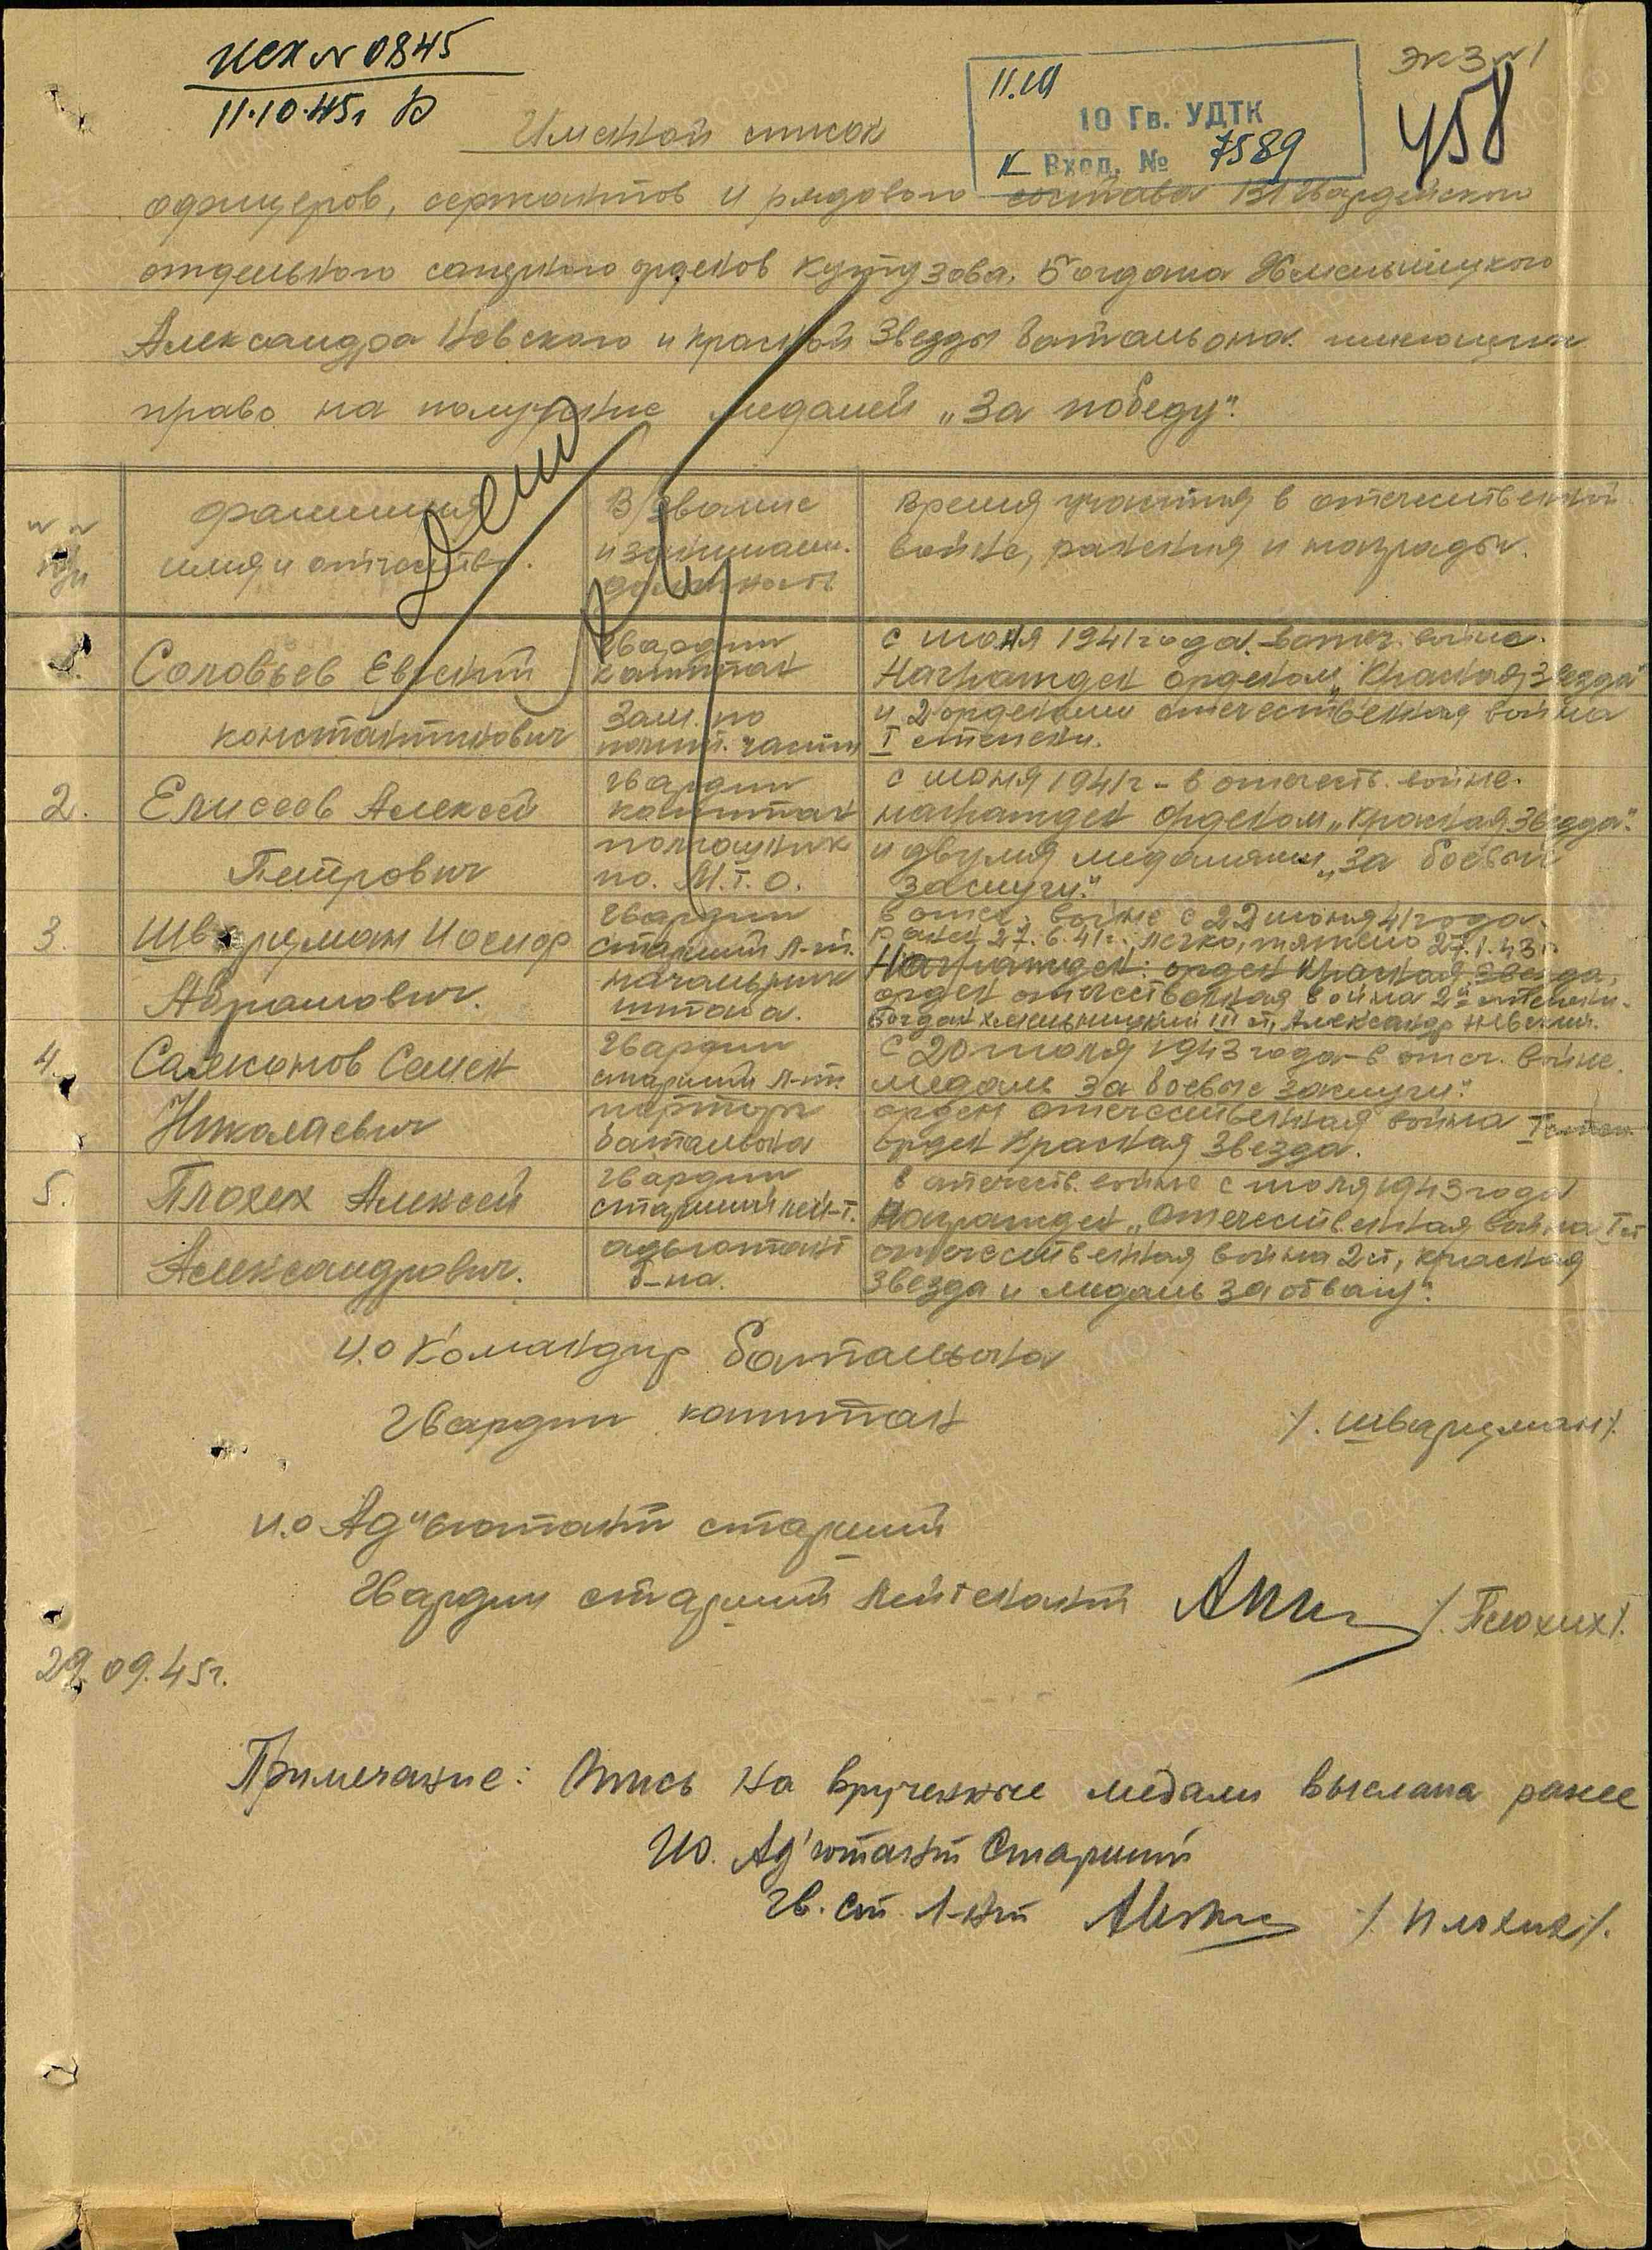 исх № 0845
11.10.45г
экз №1
458
11.10
10 Гв. УДТК
Вход. № 7589
Именной список
офицеров, сержантов и рядового состава 131 Гвардейского
отдельного саперного орденов Кутузова, Богдана Хмельницкого
Александра Невского и Красной Звезды батальона имеющих
право на получение медалей „За победу".
№ №
п/п
фамилия
имя и отчество.
В/звание
и занимаем.
должность
Время участия в отечественной
войне, ранения и награды.
1. Соловьев Евгений
Константинович
гвардии
капитан
Зам. по
полит. части
с июня 1941 года в отеч. войне.
Награжден орденом „Красная Звезда"
и 2 орденами отечественная война
I степени.
2. Елисеев Алексей
Петрович
гвардии
капитан
помощник
по М.Т.О.
с июня 1941г - в отечеств. войне.
награжден орденом „Красная Звезда"
и двумя медалями „за боевые
заслуги".
3. Шварцман Иосиф
Абрамович.
гвардии
старший л-т.
начальник
штаба.
в отеч. войне с 22 июня 41 года.
ранен 27.6.41г. легко, тяжело 27.1.43г.
Награжден: орден Красная Звезда,
орден отечественная война 2й степени.
Богдан Хмельницкий III ст, Александр Невский.
4. Самсонов Семен
Николаевич
гвардии
старший л-т.
парторг
батальона
С 20 июля 1943 года в отеч. войне.
медаль за боевые заслуги".
орден отечественная война I степ.
орден Красная Звезда.
5. Плохих Алексей
Александрович.
гвардии
старший лей-т.
адъютант
б-на.
в отечеств. войне с июля 1943 года
Награжден „Отечественная война I ст
отечественная война 2 ст, красная
звезда и медаль за отвагу".
И.о Командир батальона
Гвардии капитан /. Шварцман/.
И.о Ад"ютант старший
Гвардии старший лейтенант /. Плохих/.
29.09.45г.
Примечание: Опись на врученные медали выслана ранее
Ио. Ад'ютант Старший
Гв. ст л-нт /. Плохих/.